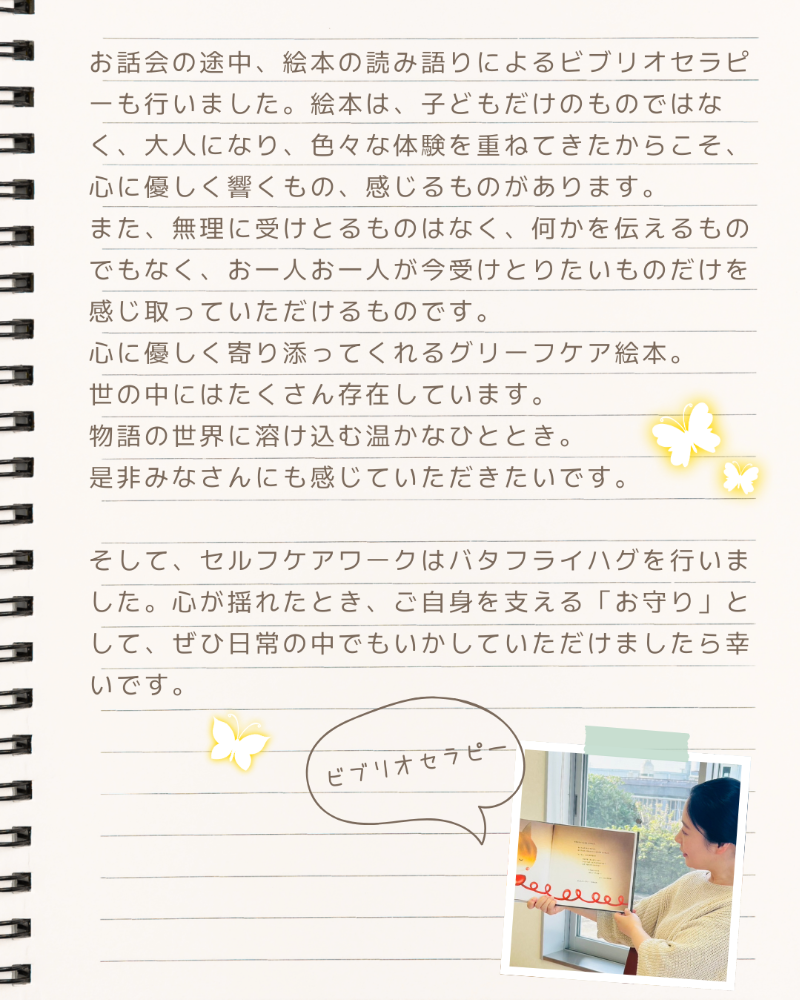 お話会の途中、絵本の読み語りによるビブリオセラピ
ーも行いました。絵本は、子どもだけのものではな
く、大人になり、色々な体験を重ねてきたからこそ、
心に優しく響くもの、感じるものがあります。
また、無理に受けとるものはなく、何かを伝えるもの
でもなく、お一人お一人が今受けとりたいものだけを
感じ取っていただけるものです。
心に優しく寄り添ってくれるグリーフケア絵本。
世の中にはたくさん存在しています。
物語の世界に溶け込む温かなひととき。
是非みなさんにも感じていただきたいです。
そして、セルフケアワークはバタフライハグを行いま
した。心が揺れたとき、ご自身を支える「お守り」と
して、ぜひ日常の中でもいかしていただけましたら幸
いです。
ビブリオセラピー